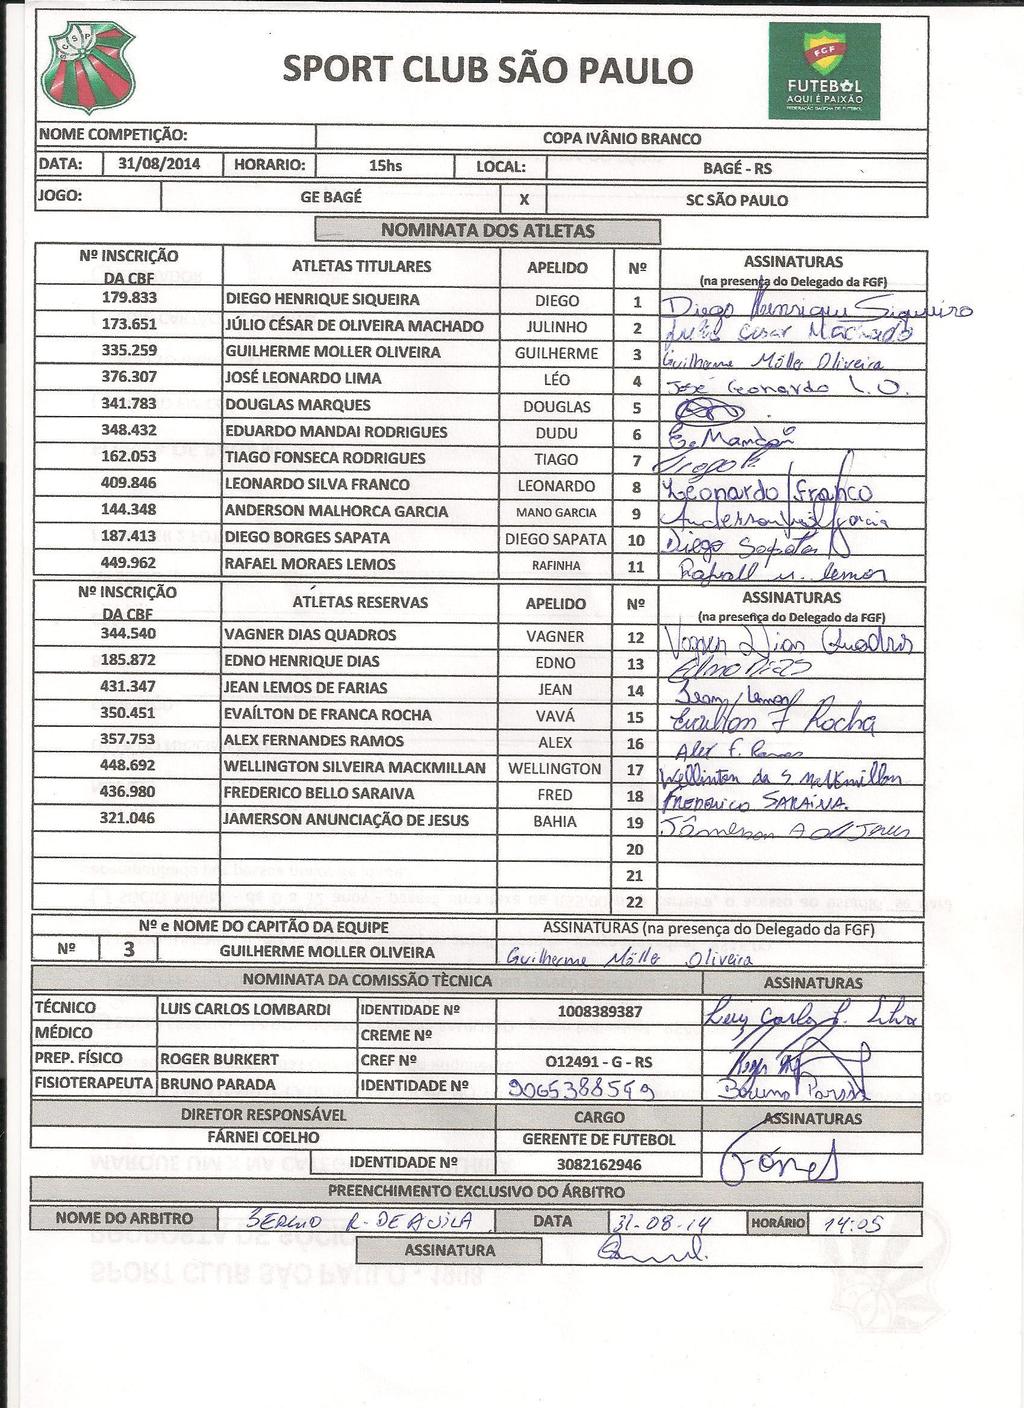 SCSP
SPORT CLUB SÃO PAULO
FGF
FUTEBOL
AQUI É PAIXÃO
FEDERAÇÃO GAÚCHA DE FUTEBOL
NOME COMPETIÇÃO: COPA IVÂNIO BRANCO
DATA: 31/08/2014 HORARIO: 15hs LOCAL: BAGÉ - RS
JOGO: GE BAGÉ X SC SÃO PAULO
NOMINATA DOS ATLETAS
Nº INSCRIÇÃO DA CBF ATLETAS TITULARES APELIDO Nº ASSINATURAS (na presença do Delegado da FGF)
179.833 DIEGO HENRIQUE SIQUEIRA DIEGO 1 Diego Henrique Siqueira
173.651 JÚLIO CÉSAR DE OLIVEIRA MACHADO JULINHO 2 Julio Cesar Machado
335.259 GUILHERME MOLLER OLIVEIRA GUILHERME 3 Guilherme Möller Oliveira
376.307 JOSÉ LEONARDO LIMA LÉO 4 José Leonardo L. O.
341.783 DOUGLAS MARQUES DOUGLAS 5
348.432 EDUARDO MANDAI RODRIGUES DUDU 6 E. Mandai
162.053 TIAGO FONSECA RODRIGUES TIAGO 7 Tiago R.
409.846 LEONARDO SILVA FRANCO LEONARDO 8 Leonardo Franco
144.348 ANDERSON MALHORCA GARCIA MANO GARCIA 9 Anderson Garcia
187.413 DIEGO BORGES SAPATA DIEGO SAPATA 10 Diego Sapata
449.962 RAFAEL MORAES LEMOS RAFINHA 11 Rafaell m. lemos
Nº INSCRIÇÃO DA CBF ATLETAS RESERVAS APELIDO Nº ASSINATURAS (na presença do Delegado da FGF)
344.540 VAGNER DIAS QUADROS VAGNER 12 Vagner Dias Quadros
185.872 EDNO HENRIQUE DIAS EDNO 13 Edno Dias
431.347 JEAN LEMOS DE FARIAS JEAN 14 Jean Lemos
350.451 EVAÍLTON DE FRANCA ROCHA VAVÁ 15 Evailton F Rocha
357.753 ALEX FERNANDES RAMOS ALEX 16 Alex F. Ramos
448.692 WELLINGTON SILVEIRA MACKMILLAN WELLINGTON 17 Wellinton da S Mackmillan
436.980 FREDERICO BELLO SARAIVA FRED 18 FREDERICO SARAIVA.
321.046 JAMERSON ANUNCIAÇÃO DE JESUS BAHIA 19 Jâmerson A d Jesus
20
21
22
Nº e NOME DO CAPITÃO DA EQUIPE ASSINATURAS (na presença do Delegado da FGF)
Nº 3 GUILHERME MOLLER OLIVEIRA Guilherme Möller Oliveira
NOMINATA DA COMISSÃO TÈCNICA ASSINATURAS
TÉCNICO LUIS CARLOS LOMBARDI IDENTIDADE Nº 1008389387 Luis Carlos L. Silva
MÉDICO CREME Nº
PREP. FÍSICO ROGER BURKERT CREF Nº O12491 - G - RS
FISIOTERAPEUTA BRUNO PARADA IDENTIDADE Nº 9065388549 Bruno Parada
DIRETOR RESPONSÁVEL CARGO ASSINATURAS
FÁRNEI COELHO GERENTE DE FUTEBOL
IDENTIDADE Nº 3082162946
PREENCHIMENTO EXCLUSIVO DO ÁRBITRO
NOME DO ARBITRO SERGIO R. DE AVILA DATA 31-08-14 HORÁRIO 14:05
ASSINATURA